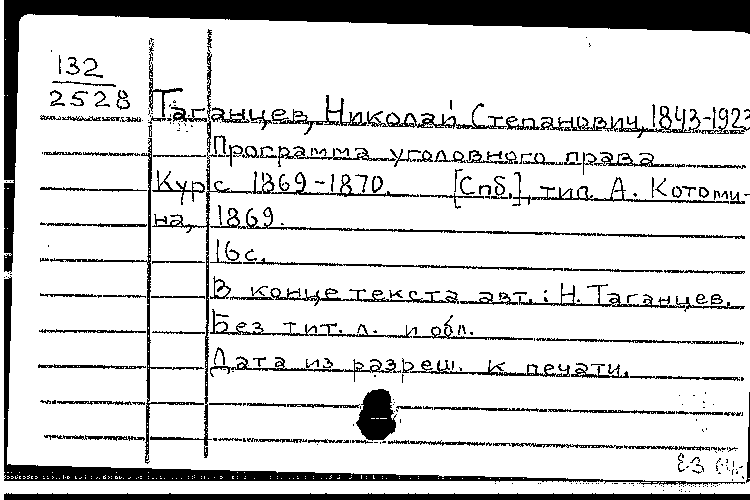 132
2528
Таганцев, Николай Степанович, 1843-1923
Программа уголовного права
Курс 1869-1870. [Спб.], тип. А. Котоми-
на, 1869.
16 с.
В конце текста авт.: Н. Таганцев.
Без тит. л. и обл.
Дата из разреш. к печати.